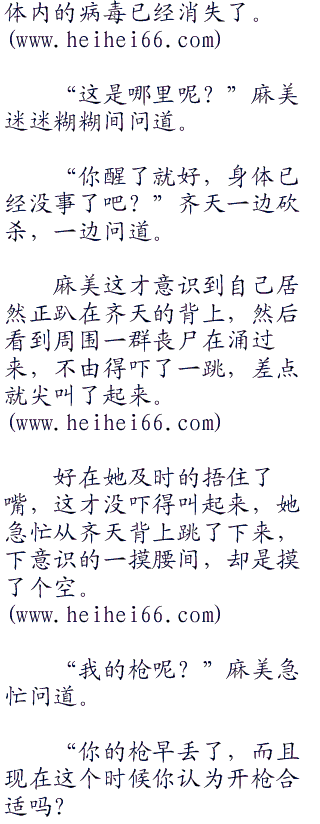 体内的病毒已经消失了。
(www.heihei66.com)
“这是哪里呢？”麻美
迷迷糊糊间问道。
“你醒了就好，身体已
经没事了吧？”齐天一边砍
杀，一边问道。
麻美这才意识到自己居
然正趴在齐天的背上，然后
看到周围一群丧尸在涌过
来，不由得吓了一跳，差点
就尖叫了起来。
(www.heihei66.com)
好在她及时的捂住了
嘴，这才没吓得叫起来，她
急忙从齐天背上跳了下来，
下意识的一摸腰间，却是摸
了个空。
(www.heihei66.com)
“我的枪呢？”麻美急
忙问道。
“你的枪早丢了，而且
现在这个时候你认为开枪合
适吗？